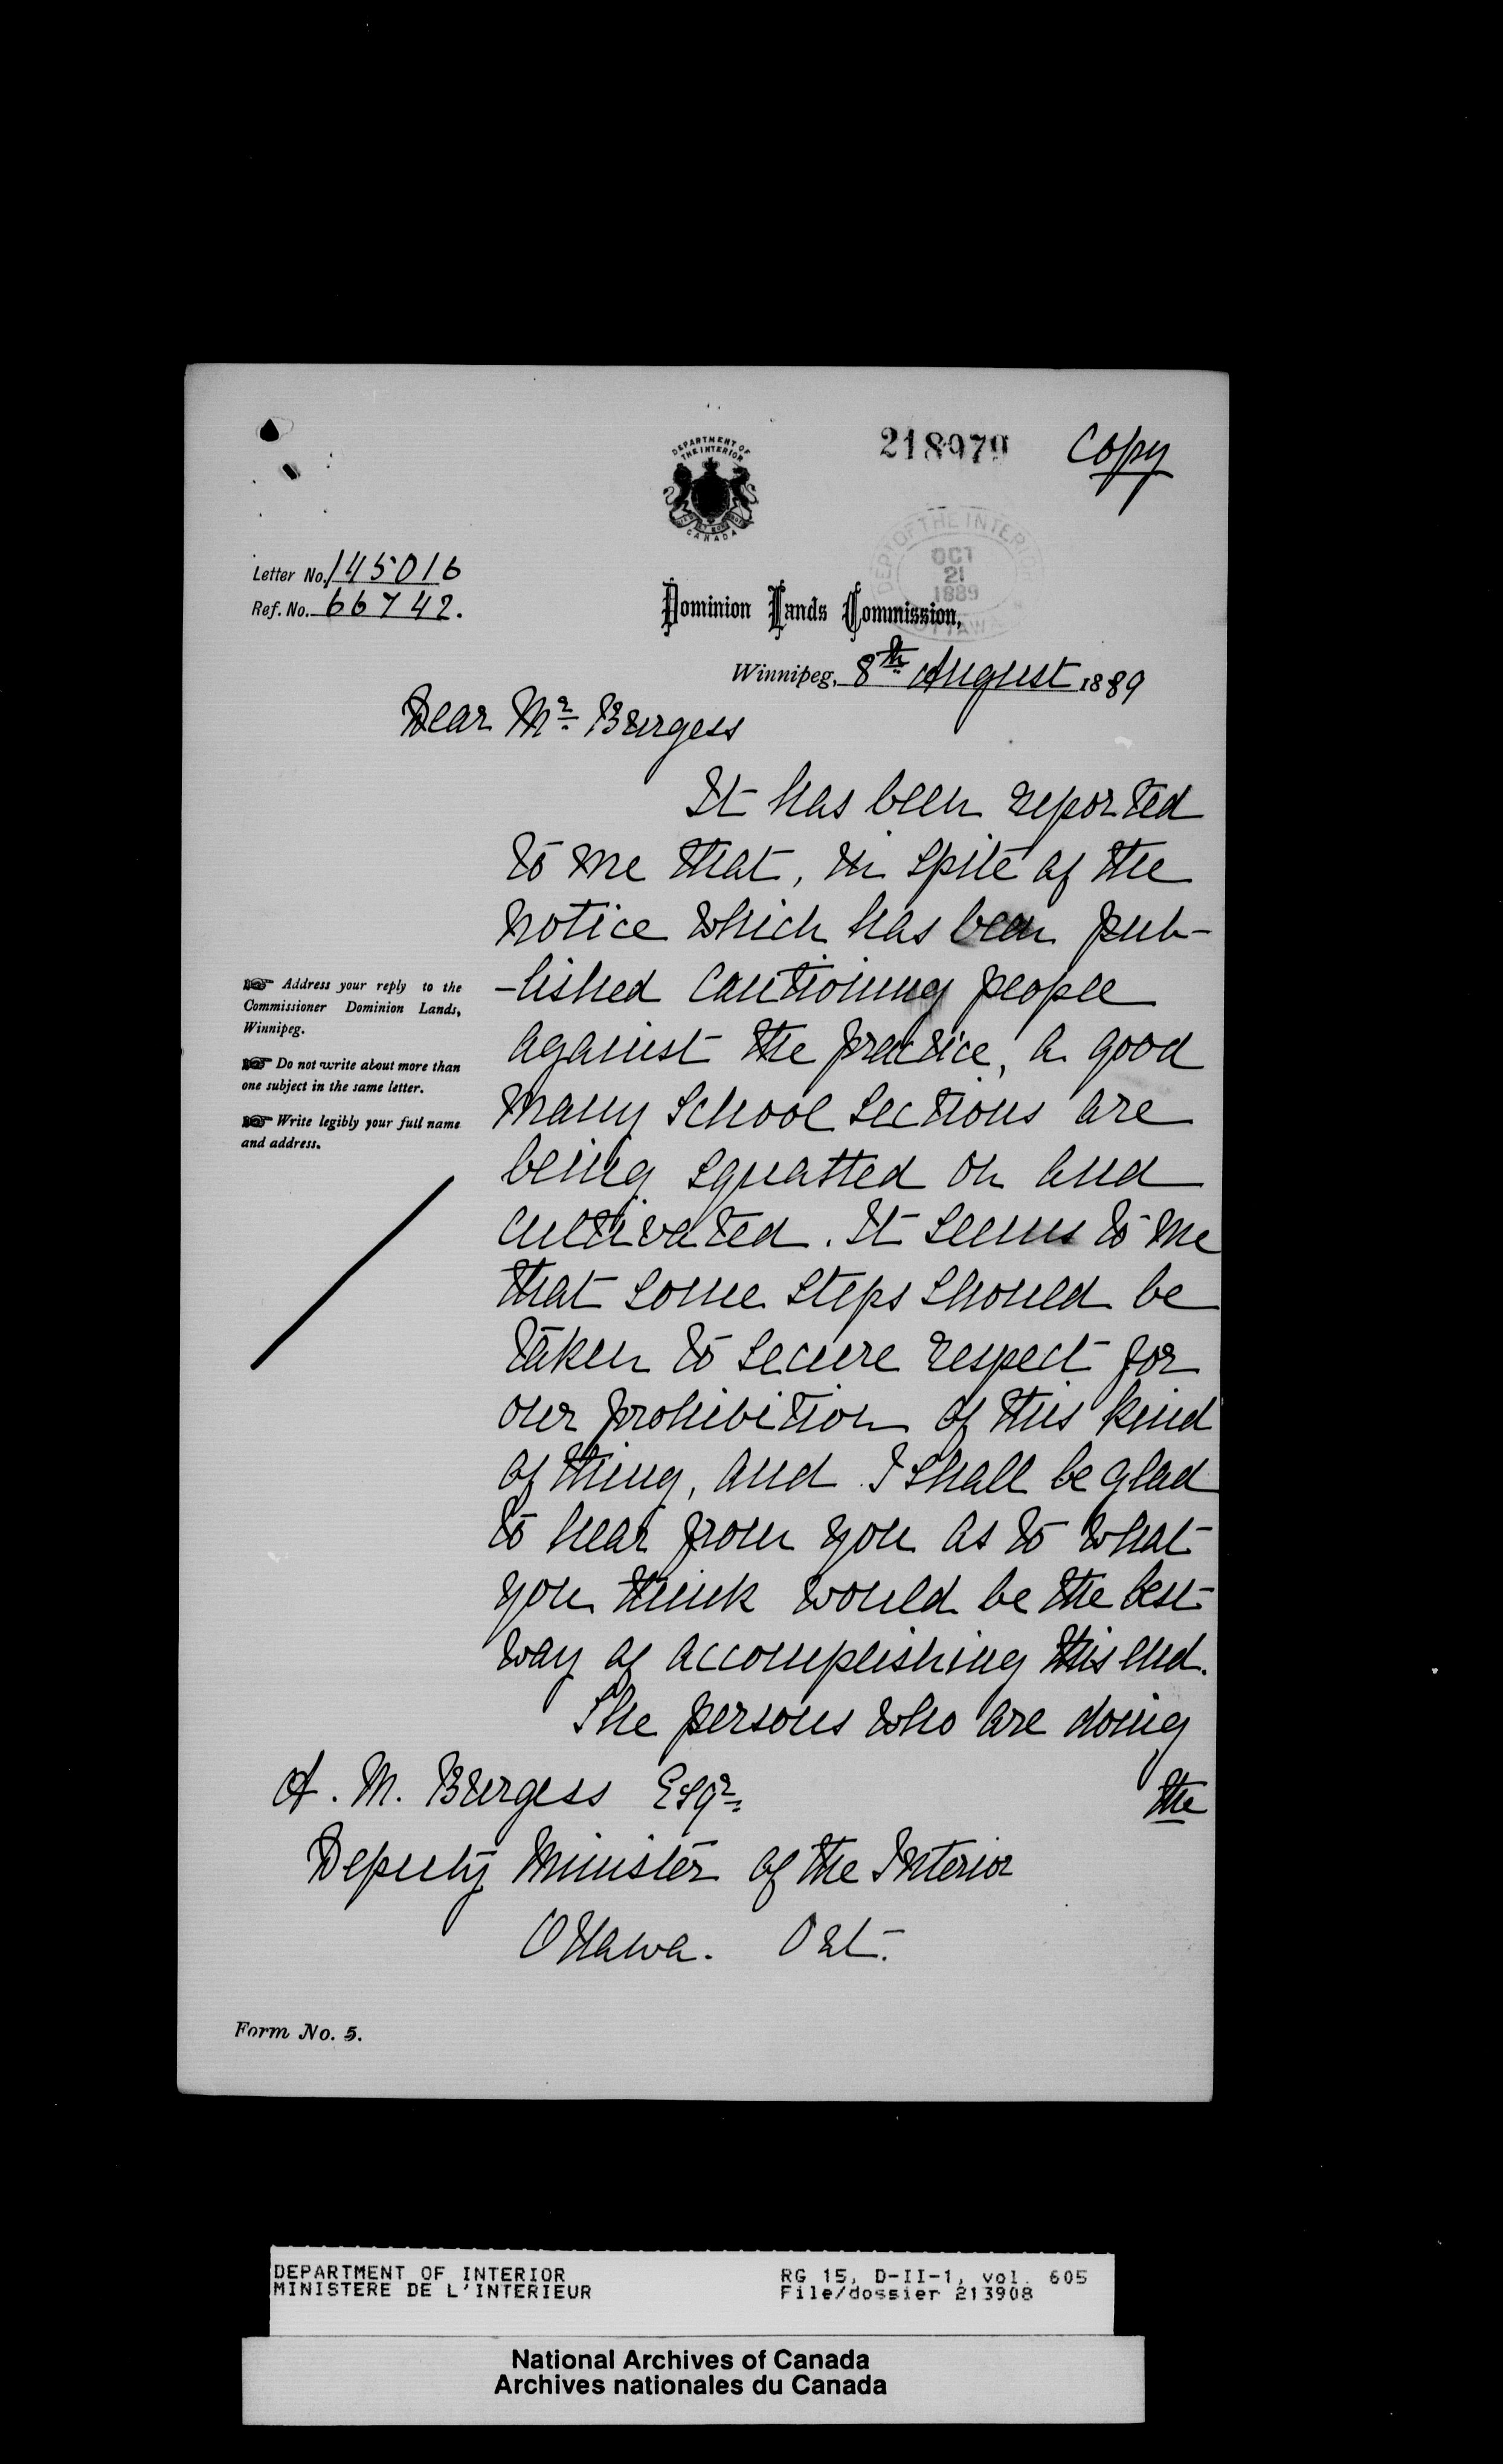 218979
Copy
DEPARTMENT OF
THE INTERIOR
CANADA
DEPT OF THE INTERIOR
OCT
21
1889
OTTAWA
Letter No. 145016
Ref. No. 66742.
Dominion Lands Commission,
Winnipeg, 8th August 1889
Dear Mr Burgess
It has been reported
to me that, in spite of the
notice which has been pub-
-lished cautioning people
against the practice, a good
many School Sections are
being squatted on and
cultivated. It seems to me
that some steps should be
taken to secure respect for
our prohibition of this kind
of thing, and I shall be glad
to hear from you as to what
you think would be the best
way of accomplishing this end.
The persons who are doing
the
Address your reply to the
Commissioner Dominion Lands,
Winnipeg.
Do not write about more than
one subject in the same letter.
Write legibly your full name
and address.
A. M. Burgess Esqr
Deputy Minister of the Interior
Ottawa. Ont.
Form No. 5.
DEPARTMENT OF INTERIOR
MINISTERE DE L'INTERIEUR
RG 15, D-II-1, vol. 605
File/dossier 213908
National Archives of Canada
Archives nationales du Canada